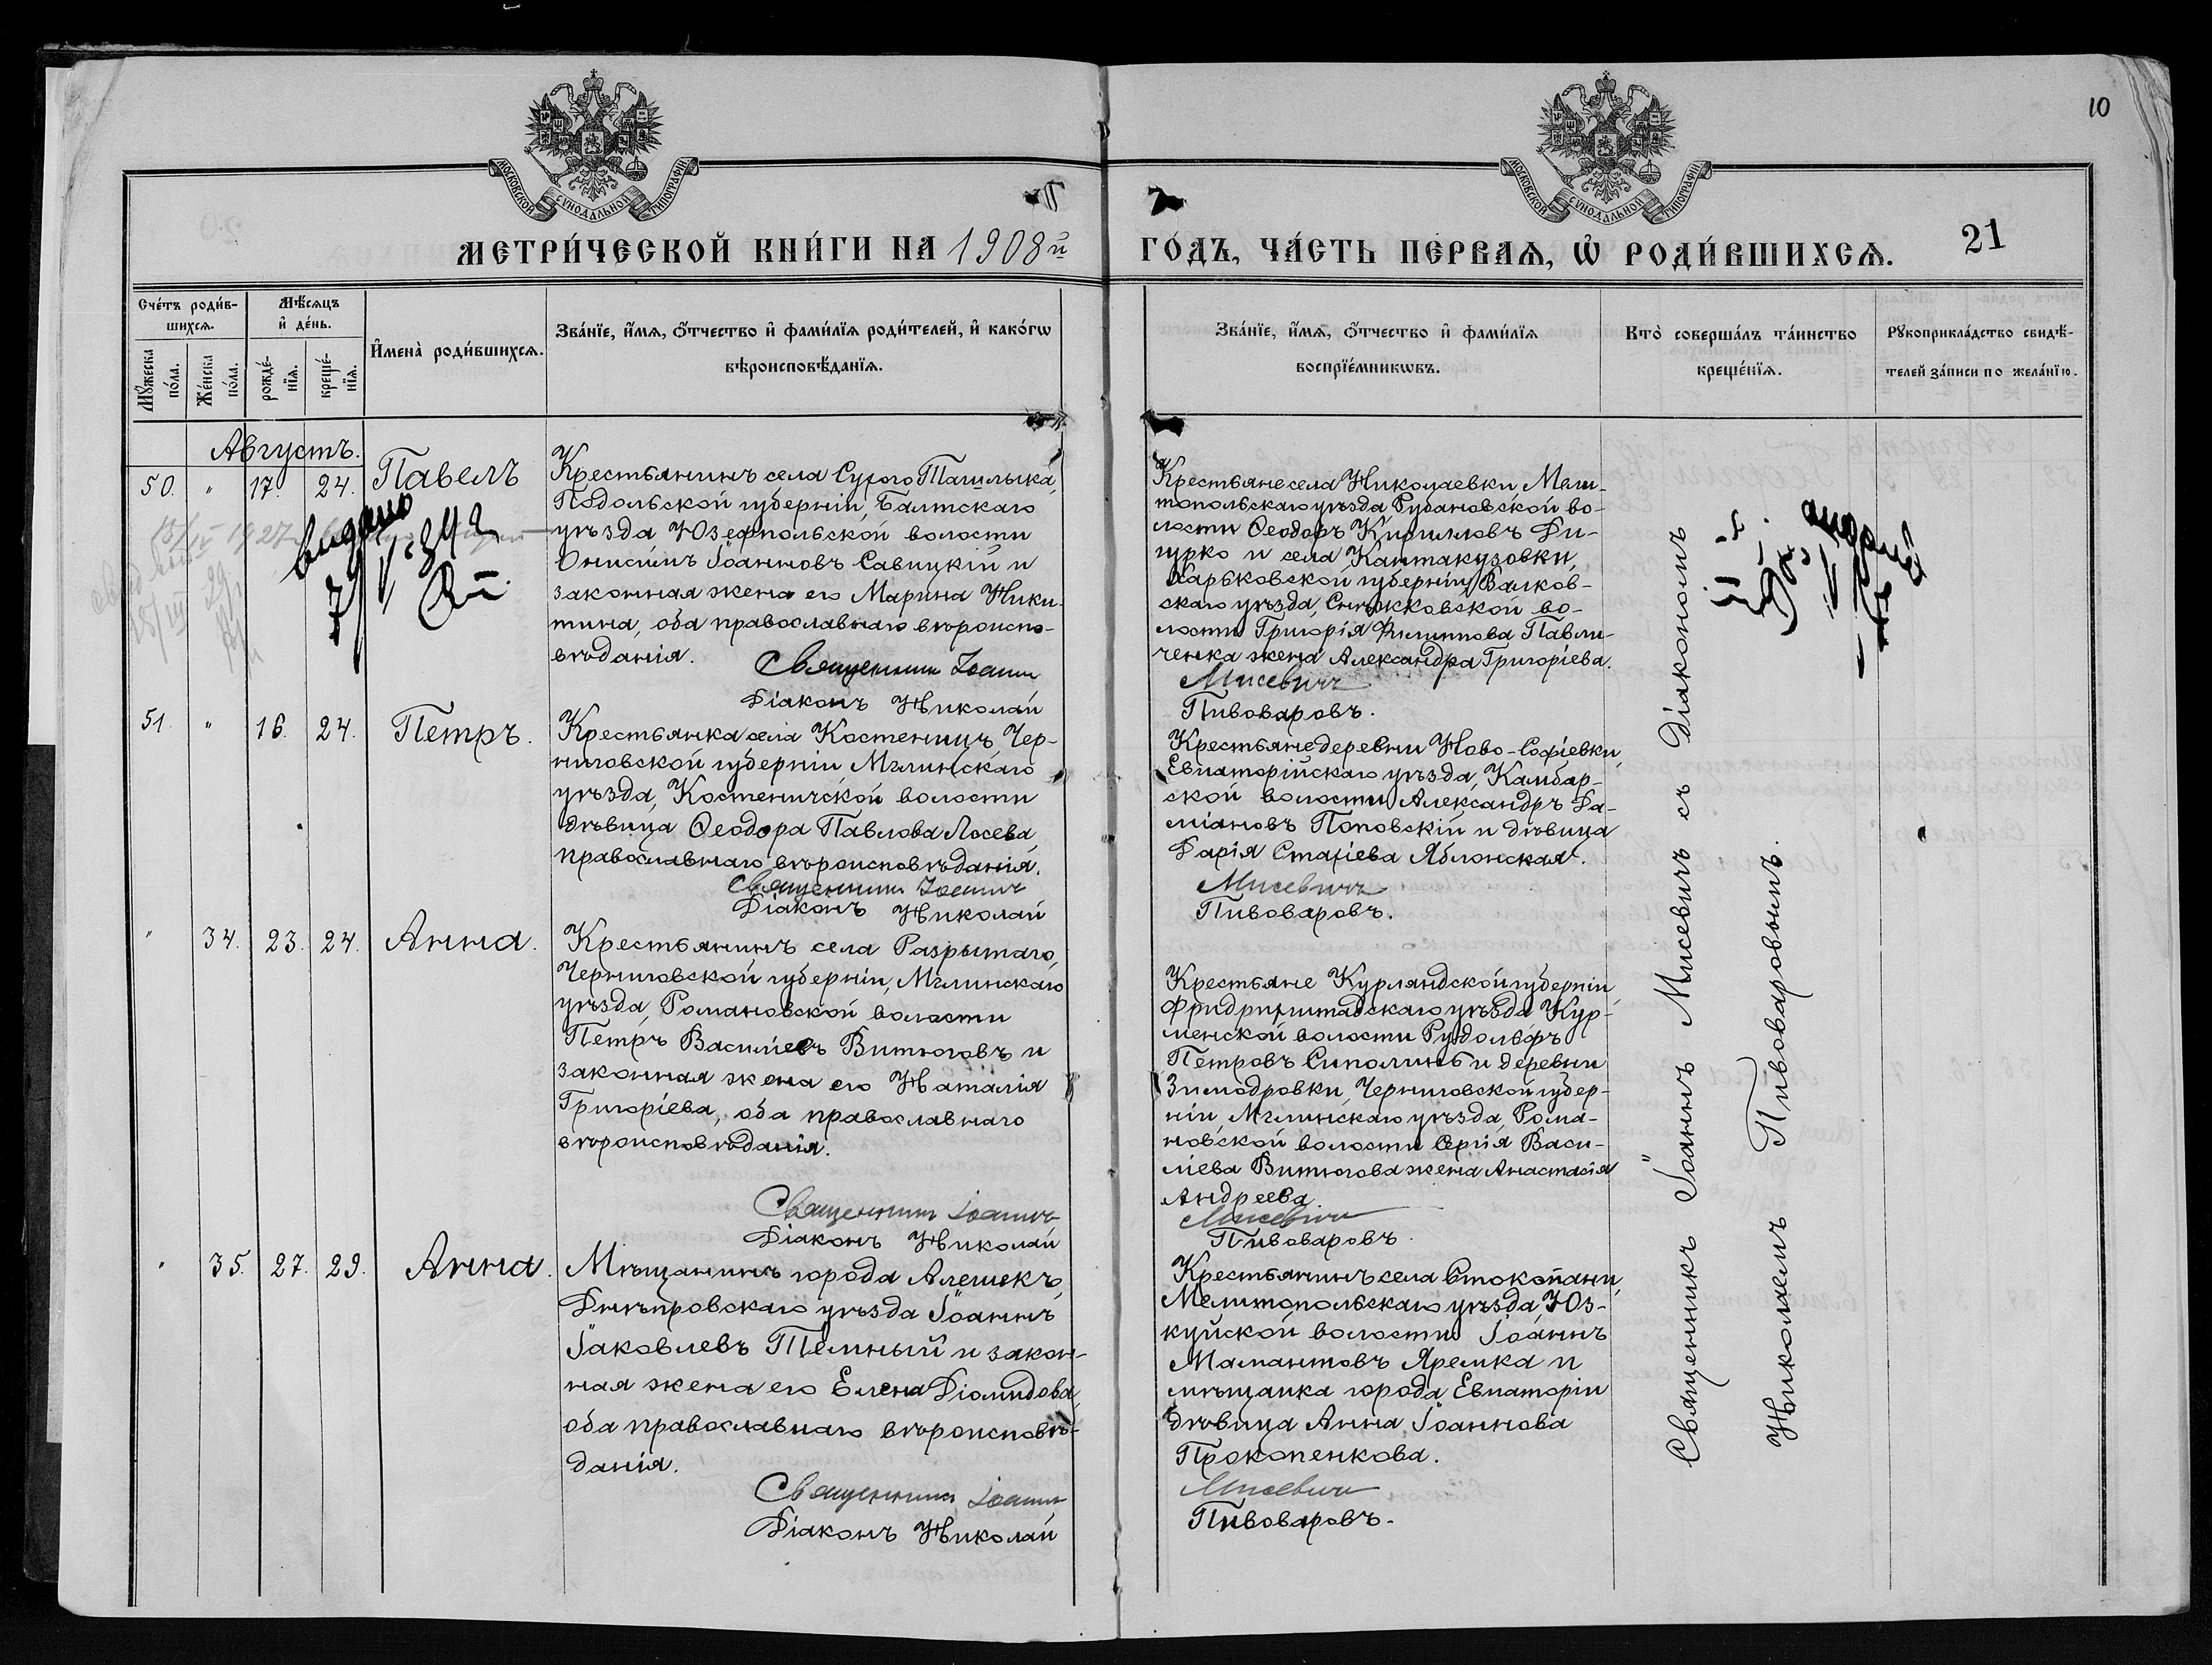 10
МОСКОВСКОЙ СѴНОДАЛЬНОЙ ТИПОГРАФІИ
МОСКОВСКОЙ СѴНОДАЛЬНОЙ ТИПОГРАФІИ
МЕТРИ́ЧЕСКОЙ КНИ́ГИ НА 1908й ГО́ДЪ, ЧА́СТЬ ПЕ́РВАѦ, Ѡ҆ РОДИ́ВШИХСѦ. 21
Сче́тъ роди́в-
шихсѧ.
Мꙋ́жеска
по́ла.
Же́нска
по́ла.
Мѣ́сѧцъ
и҆ де́нь.
рожде́-
нїѧ.
креще́-
нїѧ.
И҆мена̀ роди́вшихсѧ.
Зва́нїе, и҆́мѧ, ѻ҆́тчество и҆ фами́лїѧ роди́телей, и҆ како́гѡ
вѣроисповѣ́данїѧ.
Зва́нїе, и҆́мѧ, ѻ҆́тчество и҆ фами́лїѧ
воспрїе́мникѡвъ.
Кто̀ соверша́лъ та́инство
креще́нїѧ.
Рꙋкоприкла́дство свидѣ́-
телей за́писи по жела́нїю.
Августъ.
50. " 17. 24. Павелъ
Крестьянинъ села Сухого Ташлыка,
Подольской губерніи, Балтскаго
уѣзда Юзефпольской волости
Онисимъ Іоанновъ Савицкій и
законная жена его Марина Ники-
тина, оба православнаго вѣроиспо-
вѣданія.
Священникъ Іоаннъ
Діаконъ Николай
Крестьяне села Николаевки Мели-
топольскаго уѣзда, Рубановской во-
лости Ѳеодоръ Кирилловъ Ди-
гурко и села Кантакузовки,
Харьковской губерніи, Валков-
скаго уѣзда, Снѣжковской во-
лости Григорія Филиппова Павли-
ченка жена Александра Григоріева.
Мисевичъ
Пивоваровъ.
видано
51. " 16. 24. Петръ.
Крестьянка села Костеничъ, Чер-
ниговской губерніи Мглинскаго
уѣзда, Костеничской волости
дѣвица Ѳеодора Павлова Лосева,
православнаго вѣроисповѣданія.
Священникъ Іоаннъ
Діаконъ Николай
Крестьяне деревни Ново-Софіевки,
Евпаторійскаго уѣзда, Камбар-
ской волости Александръ Да-
міановъ Поповскій и дѣвица
Дарія Стахіева Яблонская.
Мисевичъ
Пивоваровъ.
" 34. 23. 24. Анна.
Крестьянинъ села Разрытаго,
Черниговской губерніи, Мглинскаго
уѣзда, Романовской волости
Петръ Васильевъ Витюговъ и
законная жена его Наталія
Григоріева, оба православнаго
вѣроисповѣданія.
Священникъ Іоаннъ
Діаконъ Николай
Крестьяне Курляндской губерніи
Фридрихштадскаго уѣзда Кур-
менской волости Рудольфъ
Петровъ Сиполинъ и деревни
Зимодровки, Черниговской губер-
ніи, Мглинскаго уѣзда, Рома-
новской волости Сергія Васи-
ліева Витюгова жена Анастасія
Андреева
Мисевичъ
Пивоваровъ.
" 35. 27. 29. Анна.
Мѣщанинъ города Алешекъ,
Днѣпровскаго уѣзда Іоаннъ
Іаковлевъ Темный и закон-
ная жена его Елена Діомидова,
оба православнаго вѣроисповѣ-
данія.
Священникъ Іоаннъ
Діаконъ Николай
Крестьянинъ села Стокопани,
Мелитопольскаго уѣзда, Юз-
куйской волости Іоаннъ
Мамантовъ Яремка и
мѣщанка города Евпаторіи
дѣвица Анна Іоаннова
Прокопенкова.
Мисевичъ
Пивоваровъ.
Священникъ Іоаннъ Мисевичъ съ Діакономъ
Николаемъ Пивоваровымъ.